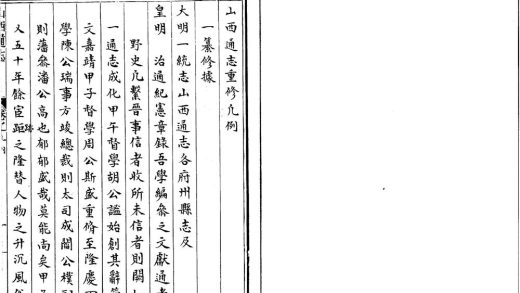 山西通志重修凡例
一纂修據
大明一統志山西通志各府州縣志及
皇明 治通紀憲章錄吾學編參之文獻通考
野史凡繫晉事信者收所未信者則闕
一通志成化甲午督學胡公謐始創其辭簡
文嘉靖甲子督學周公斯盛重脩至隆慶
學陳公瑞事方竣總裁則太司成閻公樸
則藩參潘公高也郁郁盛哉莫能尚矣甲
又五十年餘宦跡之隆替人物之升沉風